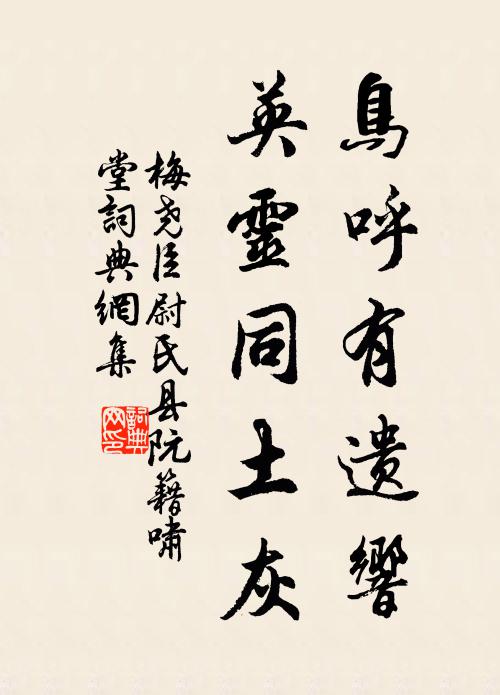 鳥呼有遗響
英靈同土灰
梅尧臣尉氏县阮籍嘯
堂詞典網集
詞典
网印